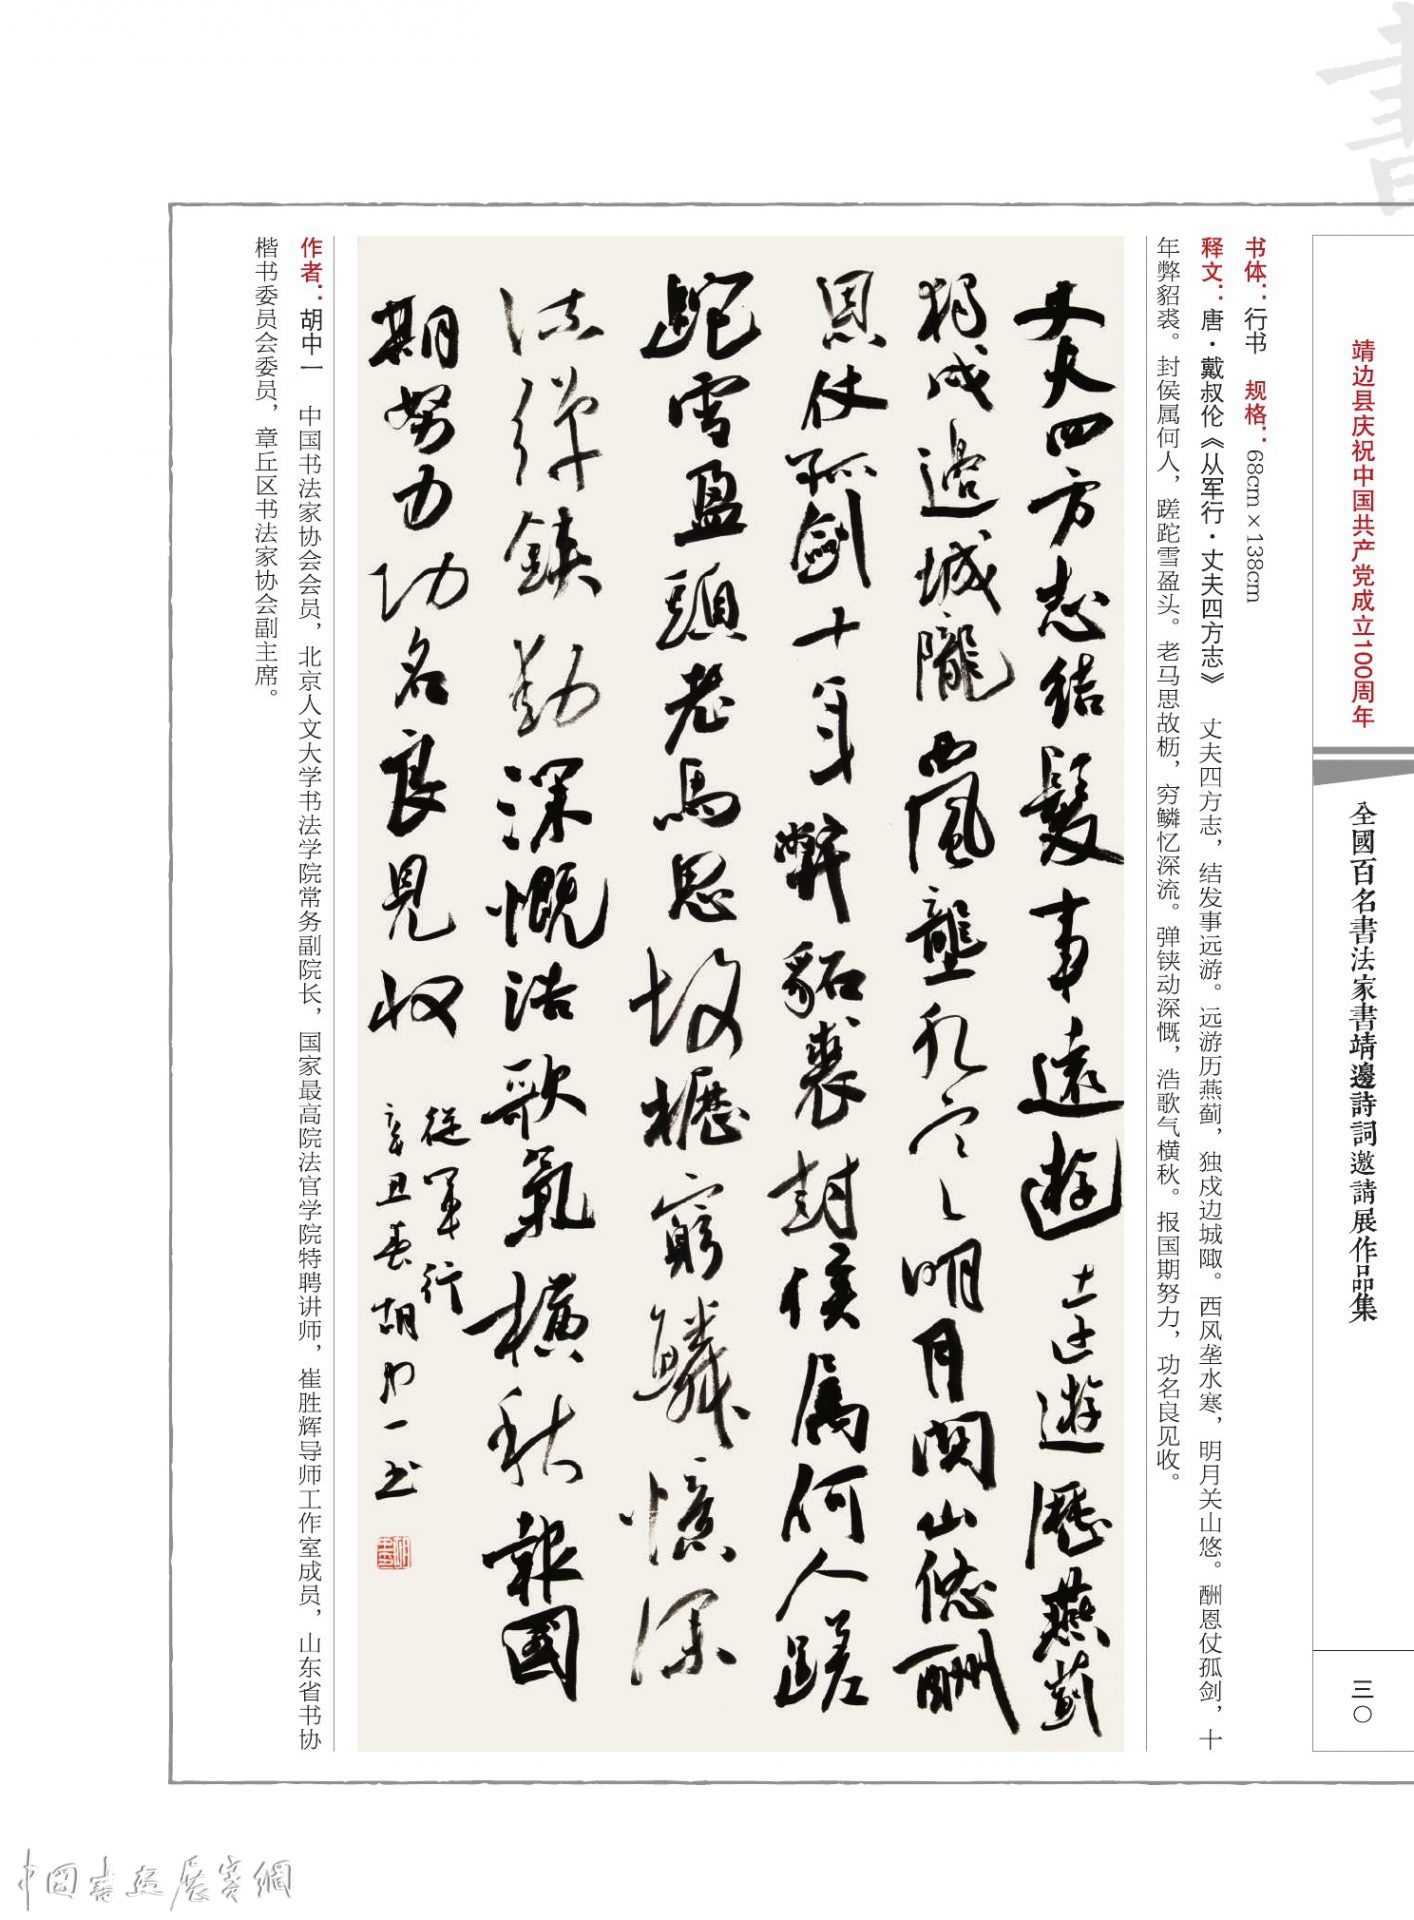 書
靖边县庆祝中国共产党成立100周年
全國百名書法家書靖邊詩詞邀請展作品集
三〇
书体：行书　规格：68cm×138cm
释文：唐·戴叔伦《从军行·丈夫四方志》　丈夫四方志，结发事远游。远游历燕蓟，独戍边城陬。西风垄水寒，明月关山悠。酬恩仗孤剑，十
年弊貂裘。封侯属何人，蹉跎雪盈头。老马思故枥，穷鳞忆深流。弹铗动深慨，浩歌气横秋。报国期努力，功名良见收。
丈夫四方志結髮事遠遊遠遊歷燕薊
獨戍邊城隴西風壟水寒明月關山悠酬
恩仗孤劍十年弊貂裘封侯屬何人蹉
跎雪盈頭老馬思故櫪窮鱗憶深
流彈鋏動深慨浩歌氣橫秋報國
期努力功名良見收
從軍行
辛丑春胡中一书
作者：胡中一　中国书法家协会会员，北京人文大学书法学院常务副院长，国家最高院法官学院特聘讲师，崔胜辉导师工作室成员，山东省书协
楷书委员会委员，章丘区书法家协会副主席。
中國書畫展賽網